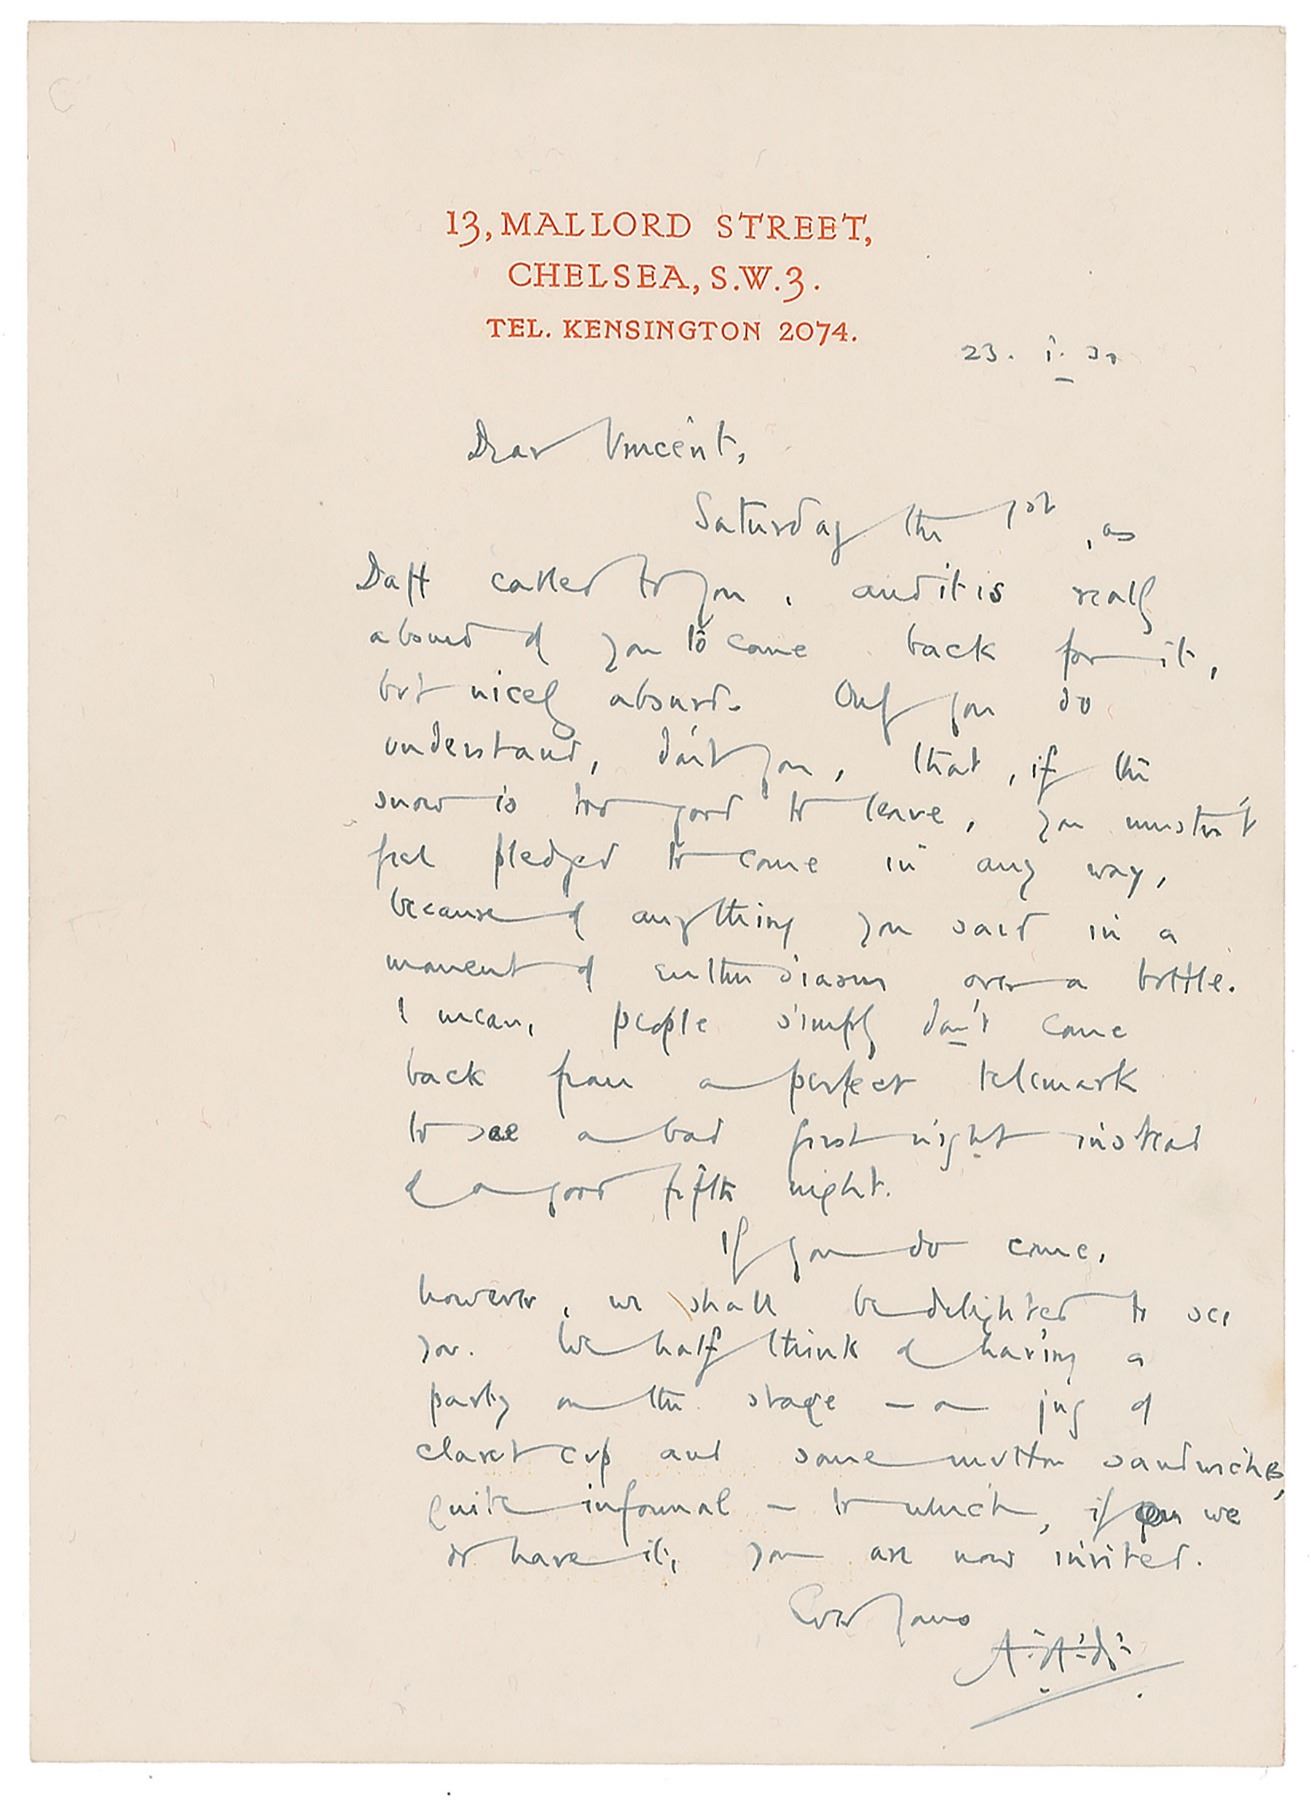 13, MALLORD STREET,
CHELSEA, S.W.3.
TEL. KENSINGTON 2074.
23. i.
Dear Vincent,
Saturday the 1st, as
Daff called to you, and it is really
absurd of you to come back for it,
but nicely absurd. Only you do
understand, don't you, that, if the
snow is too good to leave, you mustn't
feel pledged to come in any way,
because of anything you said in a
moment of enthusiasm over a bottle.
I mean, people simply don't come
back from a perfect telemark
to see a bad first night instead
of a good fifth night.
If you do come,
however, we shall be delighted to see
you. We half think of having a
party on the stage – a jug of
claret cup and some mutton sandwiches,
quite informal – to which, if we
do have it, you are now invited.
Ever yours